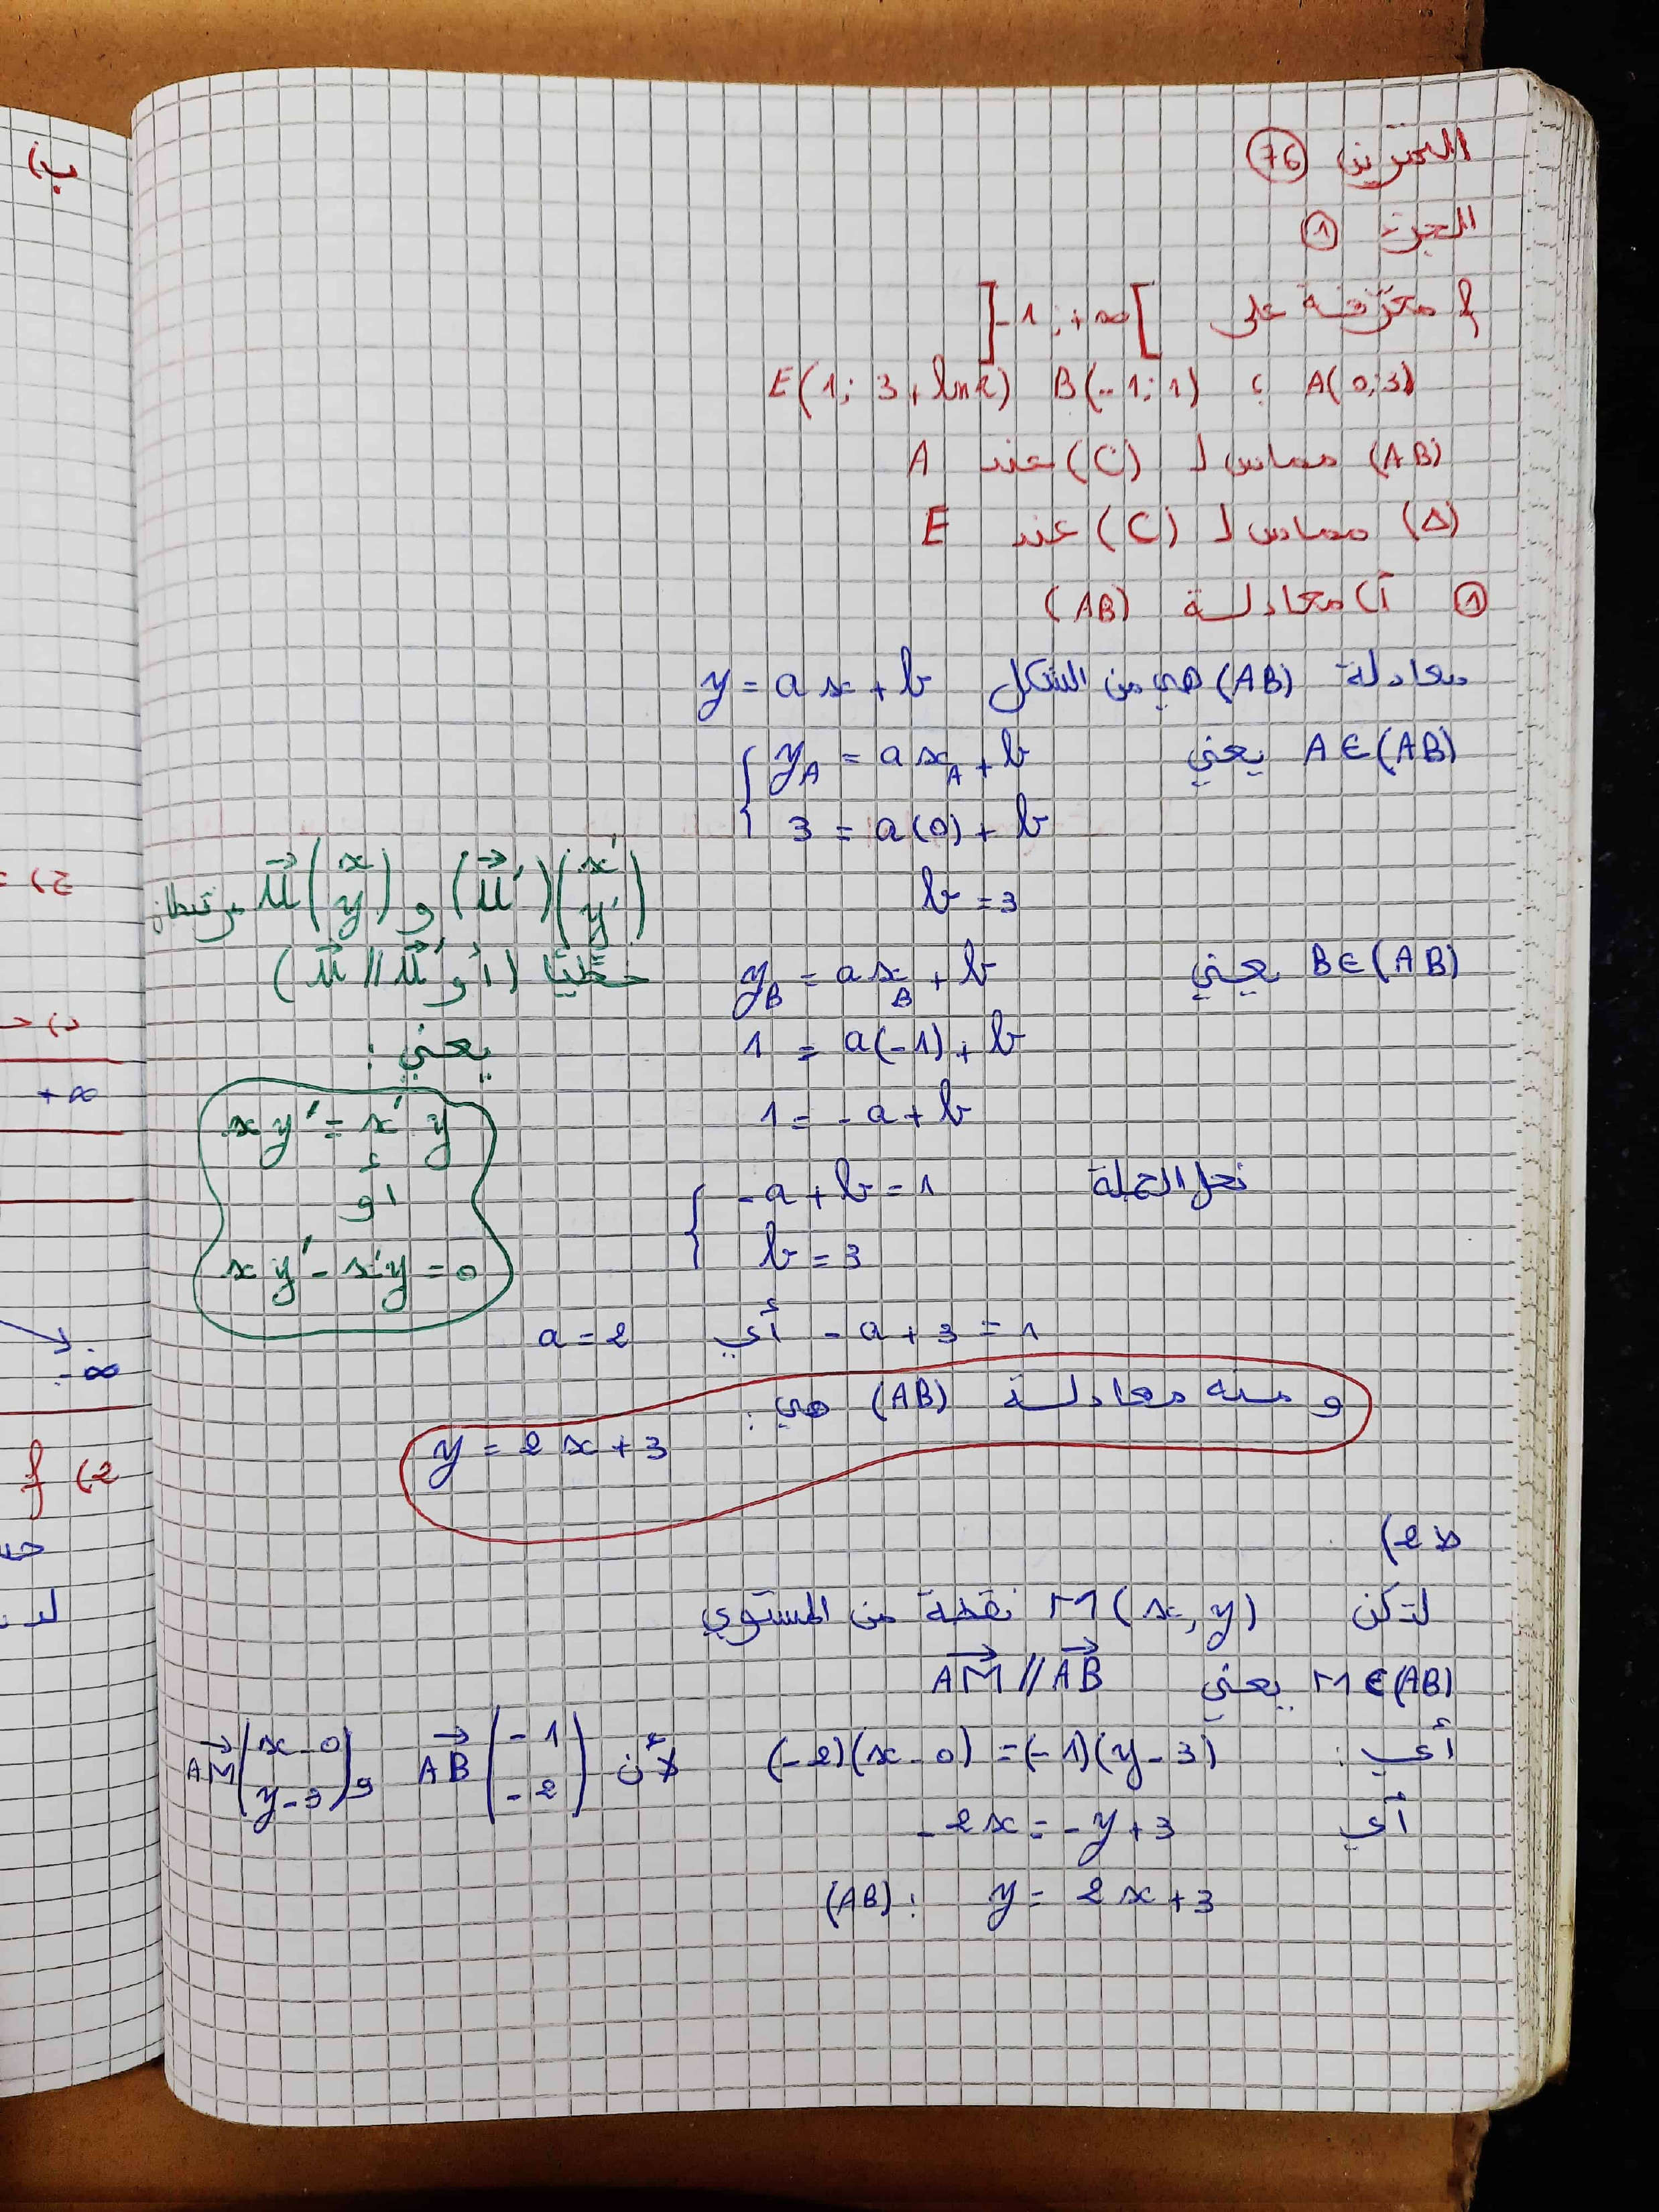 التمرين 76
الجزء 1
f معرّفة على ]-1 ; +∞[
A(0;3) ; B(-1;1) E(1; 3+ln2)
(AB) مماس لـ (C) عند A
(Δ) مماس لـ (C) عند E
1 أ) معادلة (AB)
معادلة (AB) هي من الشكل y = ax + b
A∈(AB) يعني { y_A = a x_A + b
3 = a(0) + b
b = 3
B∈(AB) يعني y_B = a x_B + b
1 = a(-1) + b
1 = -a + b
نحل الجملة { -a + b = 1
b = 3
-a + 3 = 1 أي a = 2
و منه معادلة (AB) هي :
y = 2x + 3
u⃗(x y) و (u⃗')(x' y') مرتبطان
خطّيًا (أو u⃗ // u⃗')
يعني :
xy' = x'y
أو
xy' - x'y = 0
ط2)
لتكن M(x, y) نقطة من المستوي
M∈(AB) يعني AM⃗ // AB⃗
أي : (-2)(x-0) = (-1)(y-3) لأن AB⃗(-1 -2) و AM⃗(x-0 y-3)
أي -2x = -y + 3
(AB) : y = 2x + 3
ب)
ج) =
د)
+∞
-∞
2) f